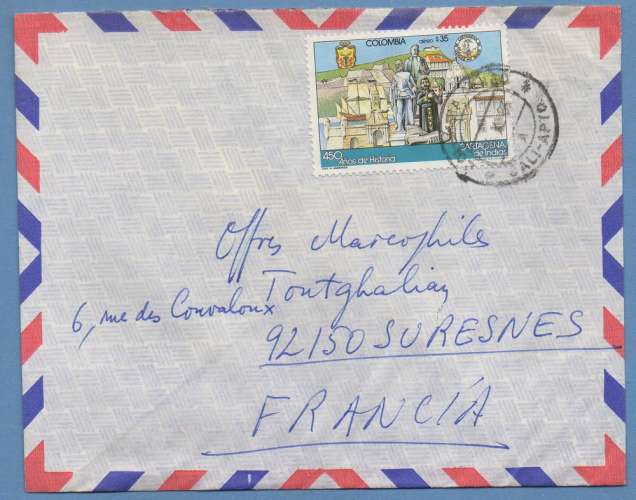 COLOMBIA aéreo $35
450 Años de Historia
CARTAGENA
de Indias
CALI-APTO.
Offres Marcophiles
Toutghalian
6, rue des Convaloux
92150 SURESNES
FRANCÍA